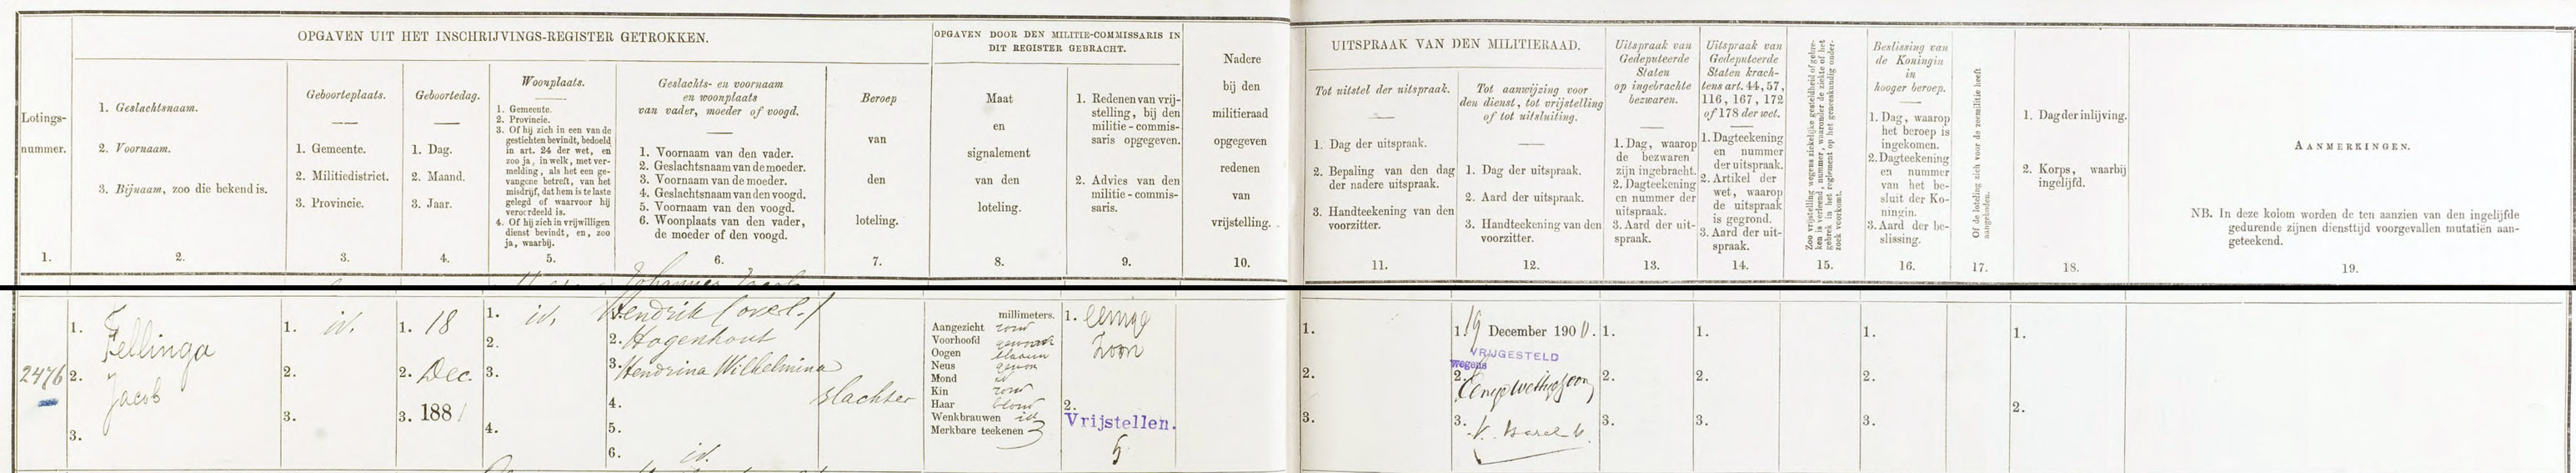 OPGAVEN UIT HET INSCHRIJVINGS-REGISTER GETROKKEN.
OPGAVEN DOOR DEN MILITIE-COMMISSARIS IN
DIT REGISTER GEBRACHT.
Lotings-
nummer.
1.
1. Geslachtsnaam.
2. Voornaam.
3. Bijnaam, zoo die bekend is.
2.
Geboorteplaats.
1. Gemeente.
2. Militiedistrict.
3. Provincie.
3.
Geboortedag.
1. Dag.
2. Maand.
3. Jaar.
4.
Woonplaats.
1. Gemeente.
2. Provincie.
3. Of hij zich in een van de
gestichten bevindt, bedoeld
in art. 24 der wet, en
zoo ja, in welk, met ver-
melding, als het een ge-
vangene betreft, van het
misdrijf, dat hem is te laste
gelegd of waarvoor hij
veroordeeld is.
4. Of hij zich in vrijwilligen
dienst bevindt, en, zoo
ja, waarbij.
5.
Geslachts- en voornaam
en woonplaats
van vader, moeder of voogd.
1. Voornaam van den vader.
2. Geslachtsnaam van de moeder.
3. Voornaam van de moeder.
4. Geslachtsnaam van den voogd.
5. Voornaam van den voogd.
6. Woonplaats van den vader,
de moeder of den voogd.
6.
Beroep
van
den
loteling.
7.
Maat
en
signalement
van den
loteling.
8.
1. Redenen van vrij-
stelling, bij den
militie-commis-
saris opgegeven.
2. Advies van den
militie-commis-
saris.
9.
Nadere
bij den
militieraad
opgegeven
redenen
van
vrijstelling.
10.
UITSPRAAK VAN DEN MILITIERAAD.
Tot uitstel der uitspraak.
1. Dag der uitspraak.
2. Bepaling van den dag
der nadere uitspraak.
3. Handteekening van den
voorzitter.
11.
Tot aanwijzing voor
den dienst, tot vrijstelling
of tot uitsluiting.
1. Dag der uitspraak.
2. Aard der uitspraak.
3. Handteekening van den
voorzitter.
12.
Uitspraak van
Gedeputeerde
Staten
op ingebrachte
bezwaren.
1. Dag, waarop
de bezwaren
zijn ingebracht.
2. Dagteekening
en nummer der
uitspraak.
3. Aard der uit-
spraak.
13.
Uitspraak van
Gedeputeerde
Staten krach-
tens art. 44, 57,
116, 167, 172
of 178 der wet.
1. Dagteekening
en nummer
der uitspraak.
2. Artikel der
wet, waarop
de uitspraak
is gegrond.
3. Aard der uit-
spraak.
14.
Zoo vrijstelling wegens ziekelijke gesteldheid of gebre-
ken is verleend, nummer, waaronder de ziekte of het
gebrek in het reglement op het geneeskundig onder-
zoek voorkomt.
15.
Beslissing van
de Koningin
in
hooger beroep.
1. Dag, waarop
het beroep is
ingekomen.
2. Dagteekening
en nummer
van het be-
sluit der Ko-
ningin.
3. Aard der be-
slissing.
16.
Of de loteling zich voor de zeemilitie heeft
aangeboden.
17.
1. Dag der inlijving.
2. Korps, waarbij
ingelijfd.
18.
AANMERKINGEN.
NB. In deze kolom worden de ten aanzien van den ingelijfde
gedurende zijnen diensttijd voorgevallen mutatiën aan-
geteekend.
19.
2476
1. Fellinga
2. Jacob
3.
1. id.
2.
3.
1. 18
2. Dec.
3. 1881
1. id.
2.
3.
4.
1. Hendrik (overl.)
2. Hogenhout
3. Hendrina Wilhelmina
4.
5.
6. id.
slachter
millimeters.
Aangezicht rond
Voorhoofd
Oogen blauw
Neus gewoon
Mond id
Kin rond
Haar blond
Wenkbrauwen id
Merkbare teekenen
1. eenige
zoon
2.
Vrijstellen.
1.
2.
3.
1. 19 December 1900.
VRIJGESTELD
wegens
2.
3.
1.
2.
3.
1.
2.
3.
1.
2.
3.
1.
2.